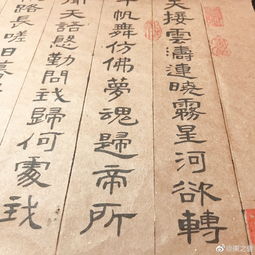 天接雲濤連曉霧星河欲轉
千帆舞仿佛夢魂歸帝所
聞天語慇勤問我歸何處我
路長嗟日暮